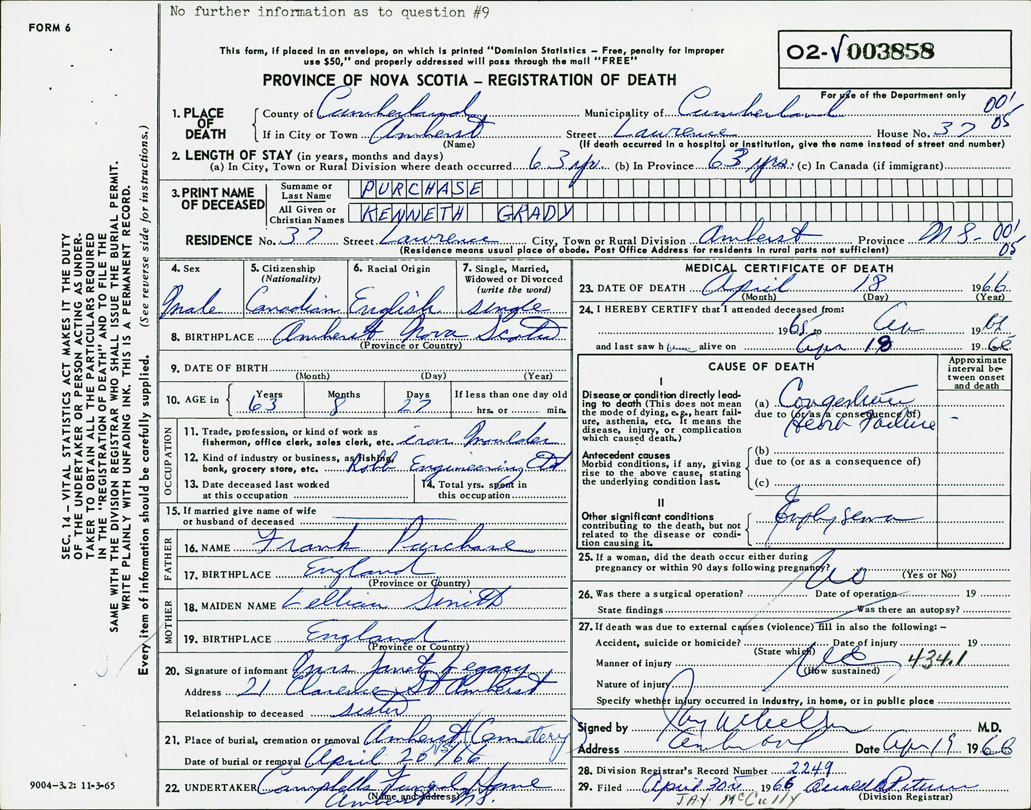 No further information as to question #9
FORM 6
This form, if placed in an envelope, on which is printed "Dominion Statistics – Free, penalty for improper
use $50," and properly addressed will pass through the mail "FREE"
O2-√003858
PROVINCE OF NOVA SCOTIA – REGISTRATION OF DEATH
For use of the Department only
1. PLACE OF DEATH
County of Cumberland Municipality of Cumberland 001
If in City or Town Amherst Street Lawrence House No. 37 05
(Name) (If death occurred in a hospital or institution, give the name instead of street and number)
2. LENGTH OF STAY (in years, months and days)
(a) In City, Town or Rural Division where death occurred 63 yr. (b) In Province 63 yrs. (c) In Canada (if immigrant)
3. PRINT NAME OF DECEASED
Surname or Last Name PURCHASE
All Given or Christian Names KENNETH GRADY
RESIDENCE No. 37 Street Lawrence City, Town or Rural Division Amherst Province N S. 001
(Residence means usual place of abode. Post Office Address for residents in rural parts not sufficient) 05
4. Sex Male
5. Citizenship (Nationality) Canadian
6. Racial Origin English
7. Single, Married, Widowed or Divorced (write the word) single
8. BIRTHPLACE Amherst Nova Scotia
(Province or Country)
9. DATE OF BIRTH
(Month) (Day) (Year)
10. AGE in Years 63 Months 8 Days 27 If less than one day old
hrs. or min.
OCCUPATION
11. Trade, profession, or kind of work as
fisherman, office clerk, sales clerk, etc. iron Moulder
12. Kind of industry or business, as fishing,
bank, grocery store, etc. Robb Engineering Ltd
13. Date deceased last worked
at this occupation
14. Total yrs. spent in
this occupation
15. If married give name of wife
or husband of deceased
FATHER
16. NAME Frank Purchase
17. BIRTHPLACE England
(Province or Country)
MOTHER
18. MAIDEN NAME Lillian Smith
19. BIRTHPLACE England
(Province or Country)
20. Signature of informant Mrs Janet Legacy
Address 21 Clarence St Amherst
Relationship to deceased sister
21. Place of burial, cremation or removal Amherst Cemetery
NS
Date of burial or removal April 20/66
22. UNDERTAKER Campbells Funeral Home
(Name and address) Amherst N.S.
MEDICAL CERTIFICATE OF DEATH
23. DATE OF DEATH April 18 1966
(Month) (Day) (Year)
24. I HEREBY CERTIFY that I attended deceased from:
1965 to 19
and last saw h alive on Apr 18 1966
CAUSE OF DEATH
Approximate interval between onset and death
I
Disease or condition directly lead-
ing to death (This does not mean
the mode of dying, e.g., heart fail-
ure, asthenia, etc. It means the
disease, injury, or complication
which caused death.)
(a) Congestive
due to (or as a consequence of)
Heart Failure –
Antecedent causes
Morbid conditions, if any, giving
rise to the above cause, stating
the underlying condition last.
(b)
due to (or as a consequence of)
(c)
II
Other significant conditions
contributing to the death, but not
related to the disease or condi-
tion causing it.
Emphysema
25. If a woman, did the death occur either during
pregnancy or within 90 days following pregnancy?
(Yes or No)
No
26. Was there a surgical operation? Date of operation 19
State findings Was there an autopsy?
27. If death was due to external causes (violence) fill in also the following: –
Accident, suicide or homicide? Date of injury 19
(State which)
Manner of injury 434.1
(How sustained)
Nature of injury
Specify whether injury occurred in industry, in home, or in public place
Signed by M.D.
Address Date Apr 19 1966
28. Division Registrar's Record Number 2249
29. Filed April 30th 1966
(Division Registrar)
JAY McCully
SEC. 14 – VITAL STATISTICS ACT MAKES IT THE DUTY
OF THE UNDERTAKER OR PERSON ACTING AS UNDER-
TAKER TO OBTAIN ALL THE PARTICULARS REQUIRED
IN THE "REGISTRATION OF DEATH" AND TO FILE THE
SAME WITH THE DIVISION REGISTRAR WHO SHALL ISSUE THE BURIAL PERMIT.
WRITE PLAINLY WITH UNFADING INK. THIS IS A PERMANENT RECORD.
Every item of information should be carefully supplied. (See reverse side for instructions.)
9004-3.2: 11-3-65